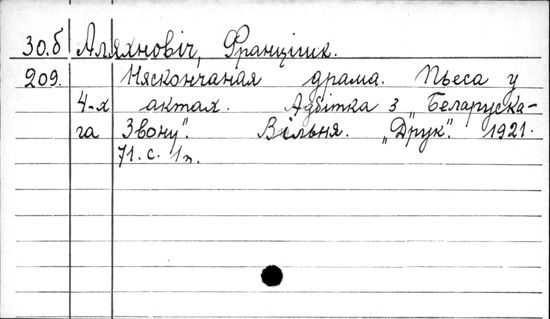 30.б Аляхновіч, Францішик.
209. Няскончаная драма. Пьеса у
4-х актах. Адбітка з „Беларуска-
га Звону". Вільня. „Друк". 1921.
71. с. 1л.